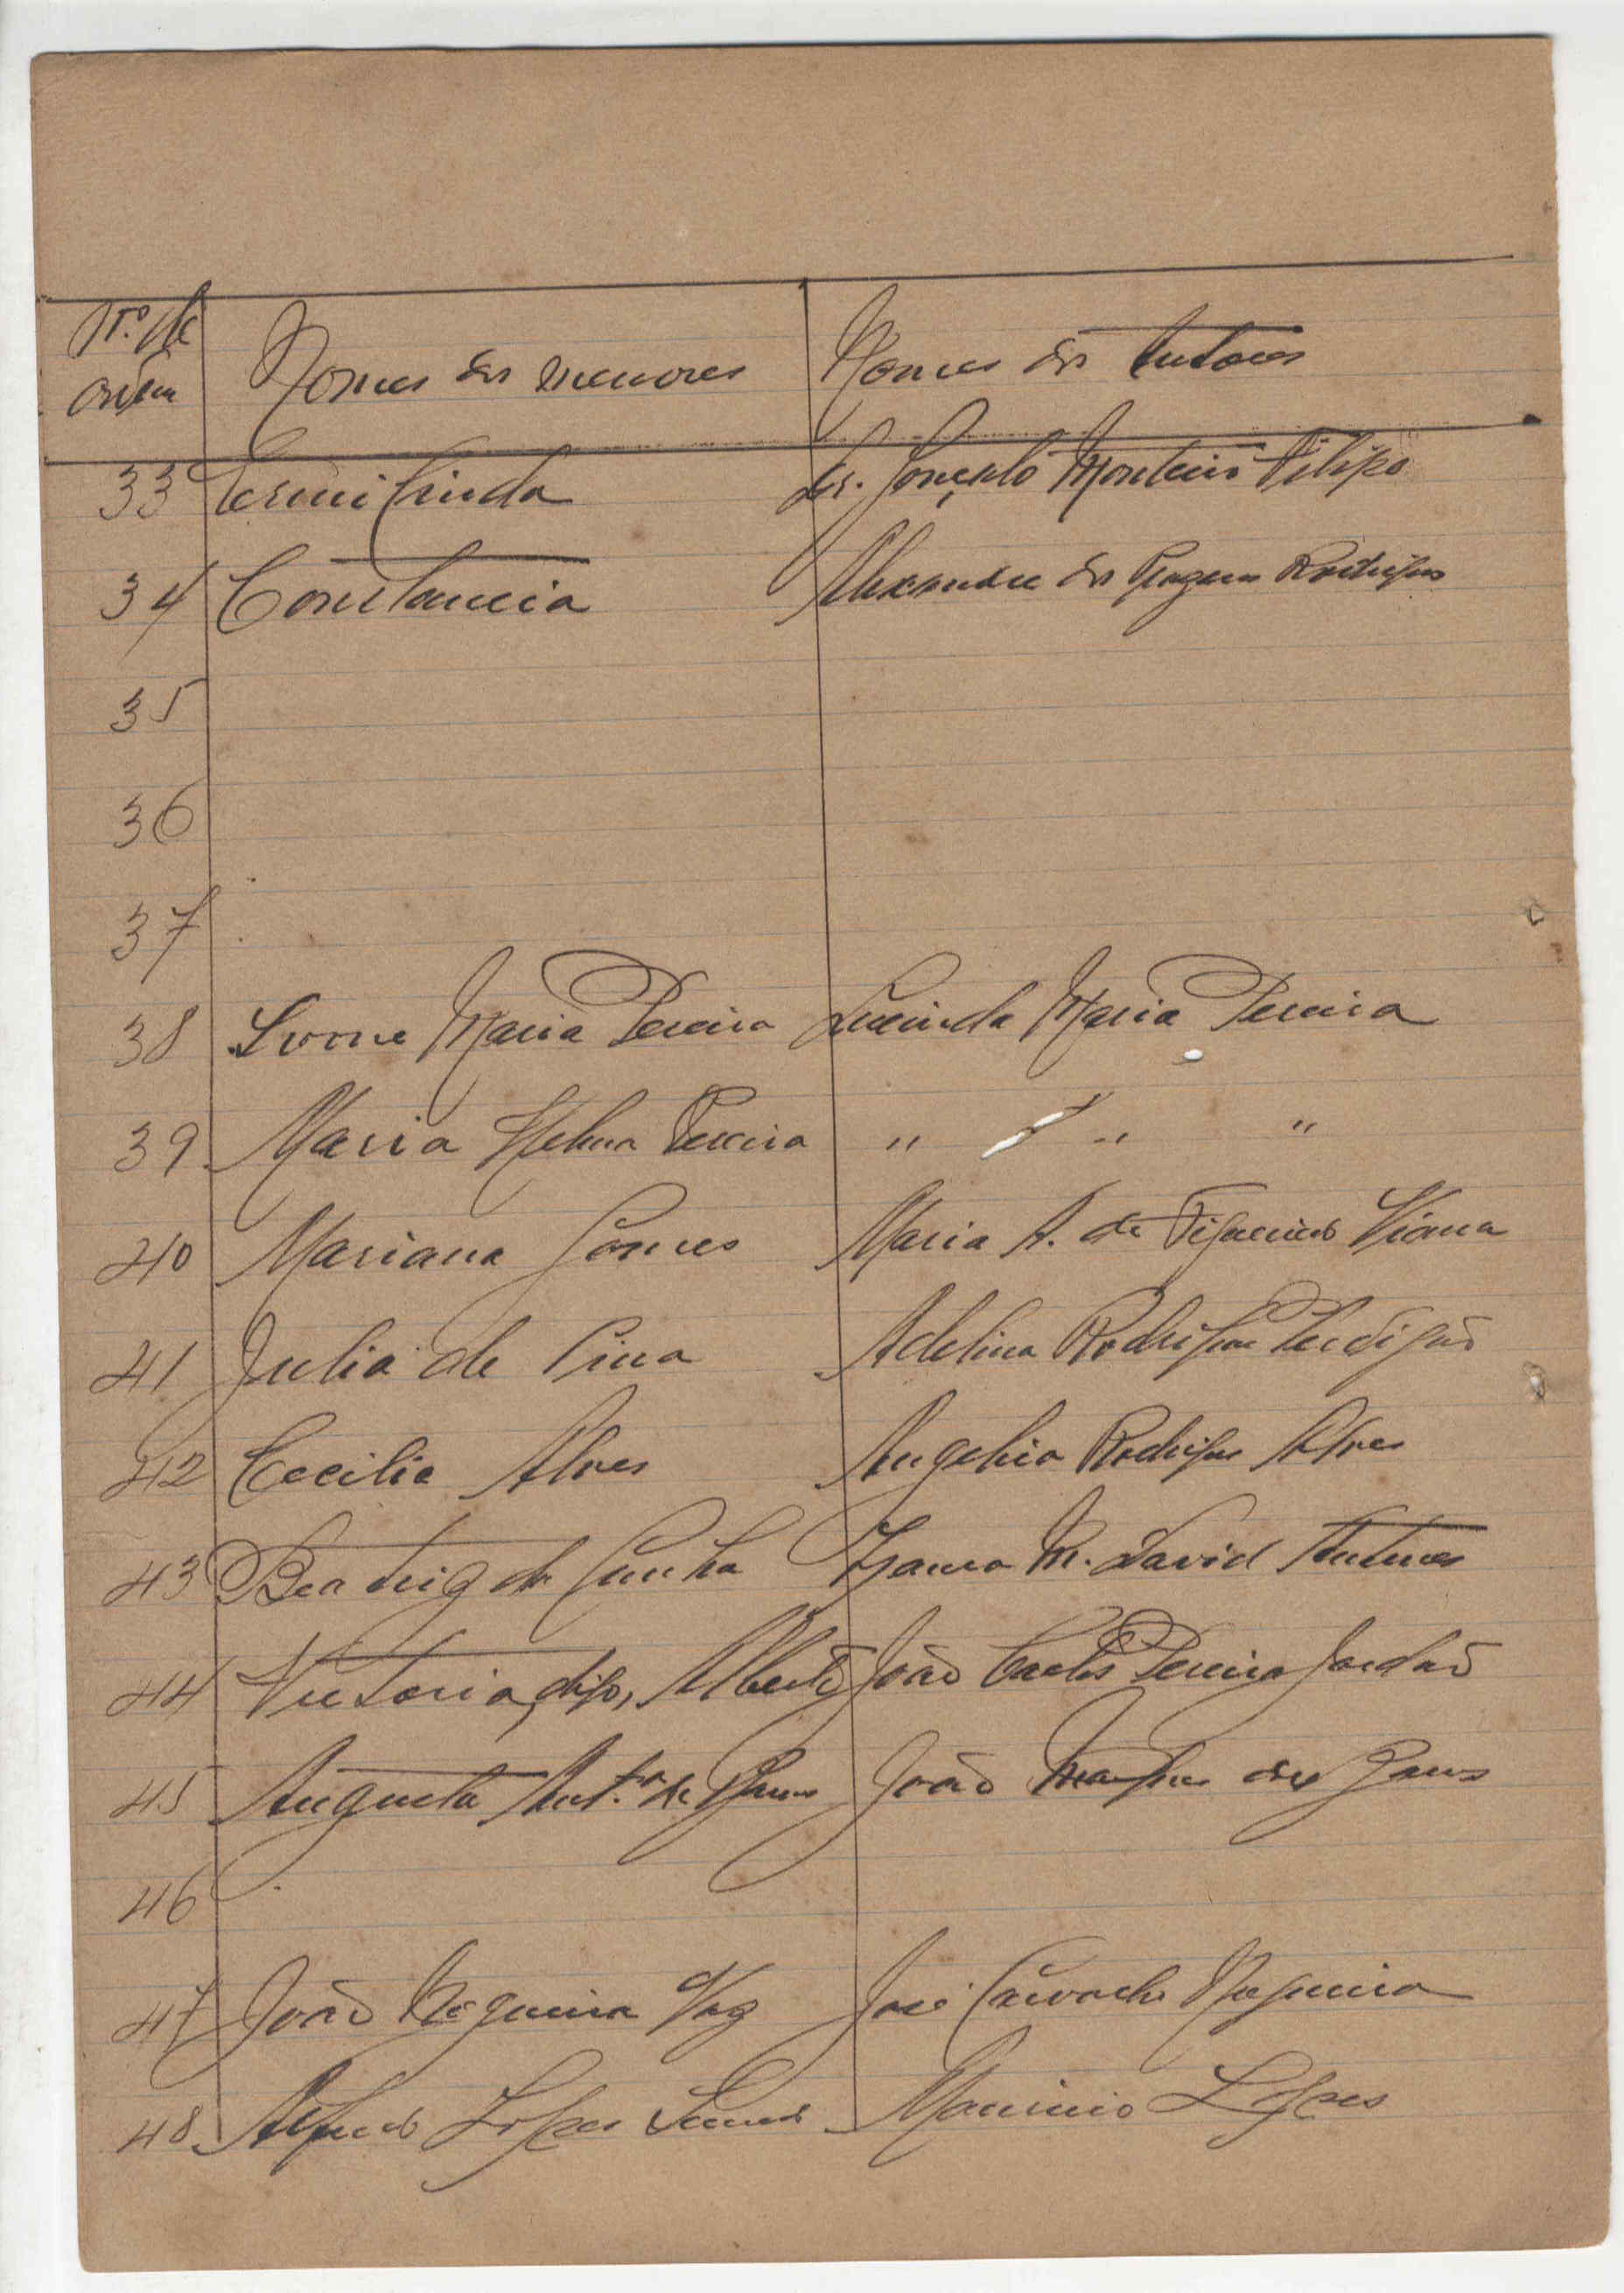 N.º de ordem Nomes dos menores Nomes dos tutores
33 Dr. Gonçalo Monteiro Filipe
34 Constancia Alexandre dos Rodrigues
35
36
37
38 Ivone Maria Pereira Lucinda Maria Pereira
39 Maria Helena Pereira " " "
40 Mariana Gomes Maria A. de Figueiredo Viana
41 Julia de Pina Adelina Rodrigues Perdigão
42 Cecilia Alves Angelina Rodrigues Alves
43 Beatriz da Cunha M. David Antunes
44 Victoria, digo, Alberto João Carlos Pereira Jordão
45 Augusta Ant.ª de João dos
46
47 João Nogueira Vaz José Carvalho Nogueira
48 Alfredo Lopes Lopes